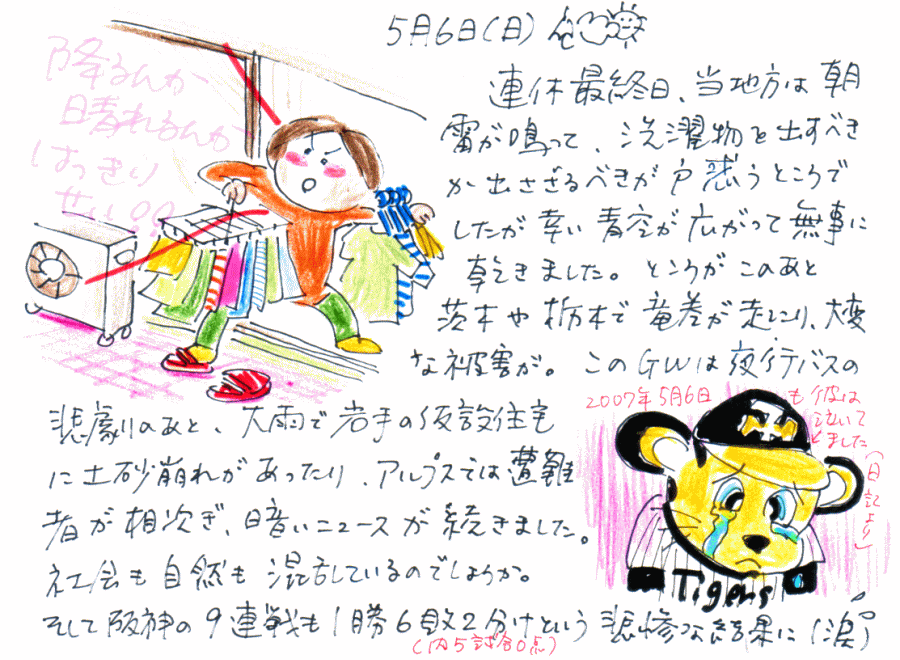 5月6日(日)
降るんか
晴れるんか
はっきり
せい!○○
連休最終日、当地方は朝
雷が鳴って、洗濯物を出すべき
か出さざるべきか戸惑うところで
したが幸い青空が広がって無事に
乾きました。ところがこのあと
茨木や栃木で竜巻が起こり、大変
な被害が。このGWは夜行バスの
悲劇のあと、大雨で岩手の仮設住宅
に土砂崩れがあったり、アルプスでは遭難
者が相次ぎ、暗いニュースが続きました。
社会も自然も混乱しているのでしょうか。
そして阪神の9連戦も1勝6敗2分けという悲惨な結果に(涙)
(内5試合0点)
2007年5月6日も彼は
泣いて
ました
(日記より)
Tigers